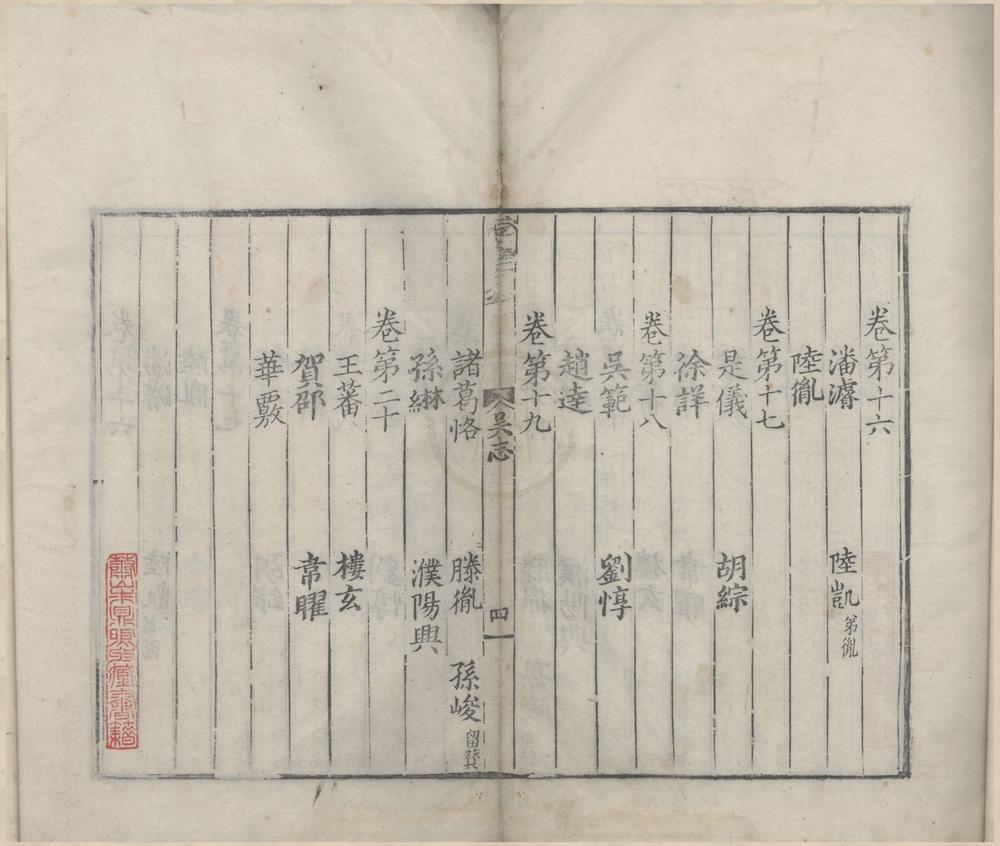 卷第十六
潘濬 陸凱 弟胤
陸胤
卷第十七
是儀 胡綜
徐詳
卷第十八
吳範 劉惇
趙達
卷第十九
吳志 四
諸葛恪 滕胤 孫峻 留贊
孫綝 濮陽興
卷第二十
王蕃 樓玄
賀邵 韋曜
華覈